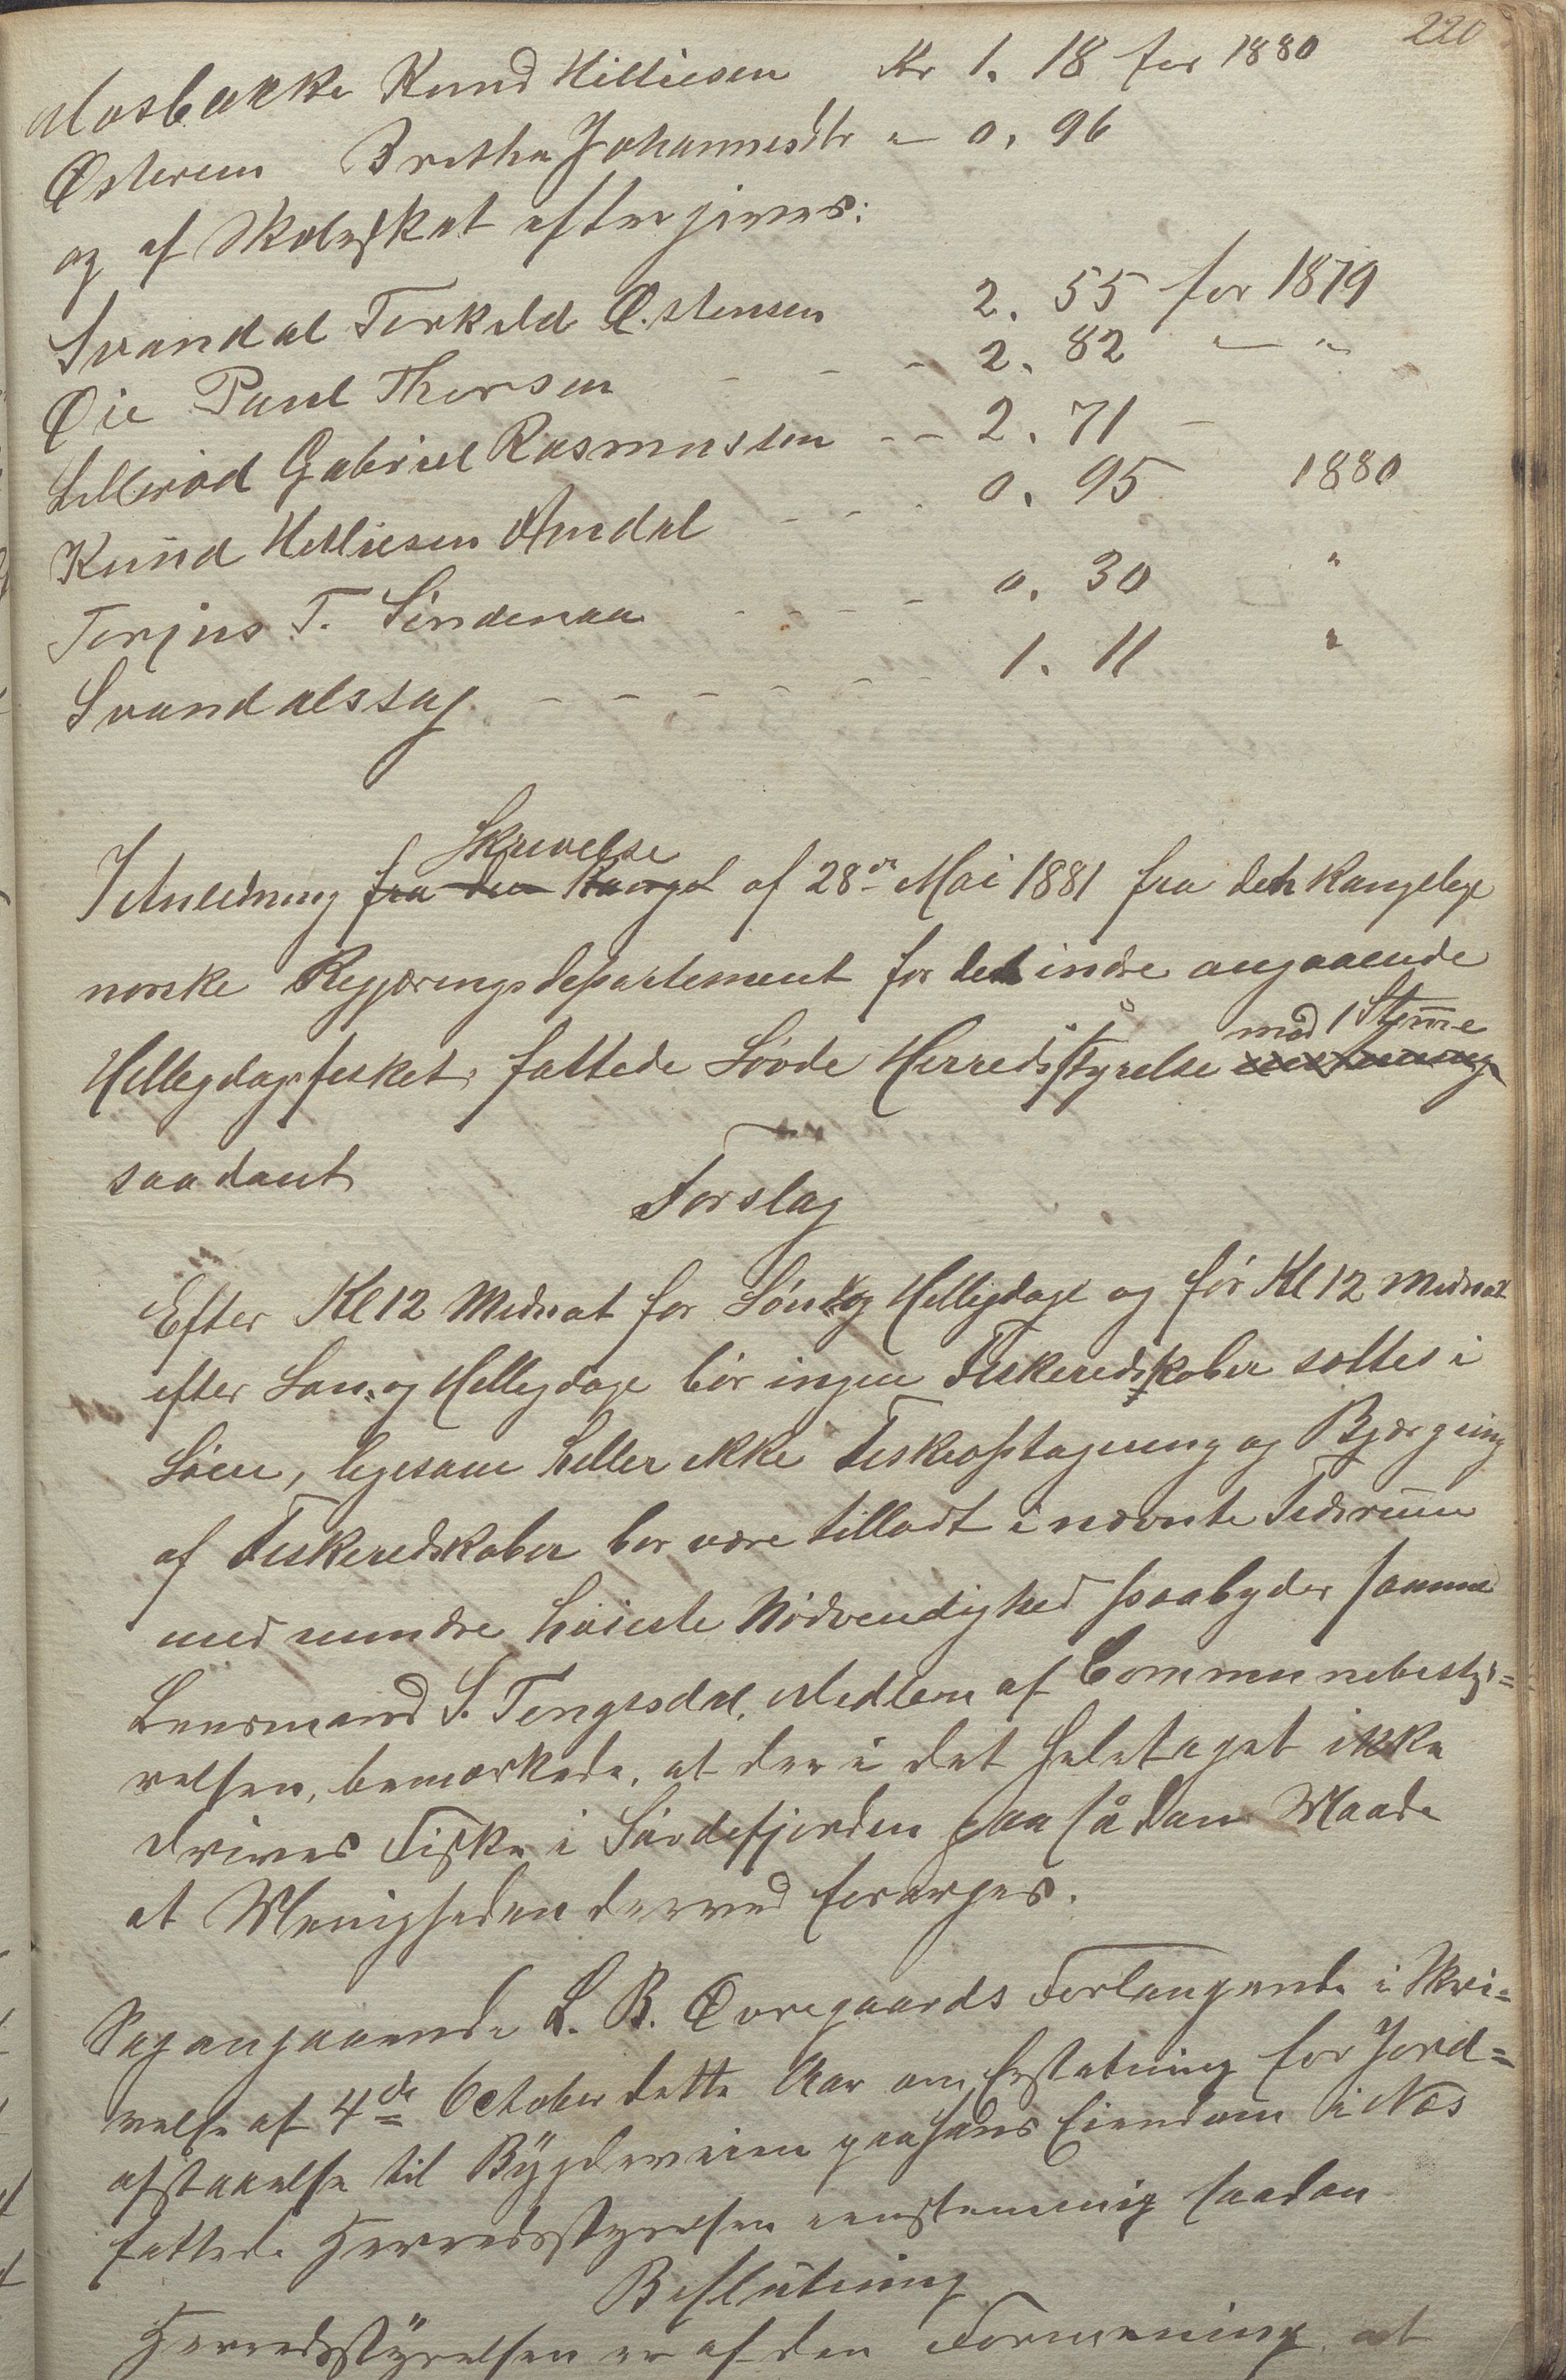 220
Mosbækka Knud Hilliesen Kr 1. 18 for 1880
Østerem Brethe Johannesdtr " 0. 96
og af Skoleskat eftergives:
Svandal Torkild Østensen 2. 55 for 1879
Øie Paul Thorsen - - - 2. 82 " "
Lillerød Gabriel Rasmussen - - 2. 71 -
Knud Helliesen Amdal - - - 0. 95 1880
Torjus T. Sundenaa - - - - 0. 30 "
Svandalssag - - - - - - 1. 11 "
Skrivelse
I Anledning fra den Kongel af 28de Mai 1881 fra det Kongelige
norske Regjeringsdepartement for det indre angaaende
med 1 Stemme
Helligdagsfisket, fattede Søvde Herredsstyrelse
saadant
Forslag
Efter Kl 12 Midnat for Søn og Helligdage og før Kl 12 Midnat
efter Søn- og Helligdage bør ingen Fiskeredskaber sættes i
Søen, ligesom heller ikke Fiskeoptagning og Bjærgning
af Fiskeredskaber bør være tilladt i nævnte Tidsrum
med mindre høieste Nødvendighed paabyder samme
Lensmand S. Tengesdal, Medlem af Communebesty-
relsen, bemærkede, at der i det Heletaget ikke
drives Fiske i Søvdefjorden paa sådan Maade
at Menigheden derved forarges.
Sag angaaende L. B. Øvregaards Forlangende i Skri-
velse af 4de October dette Aar om Erstatning for Jord-
afstaaelse til Bygdeveien paa hans Eiendom i Næs
fattede Herredsstyrelsen eenstemmig saadan
Beslutning
Herredsstyrelsen er af den Formening, at